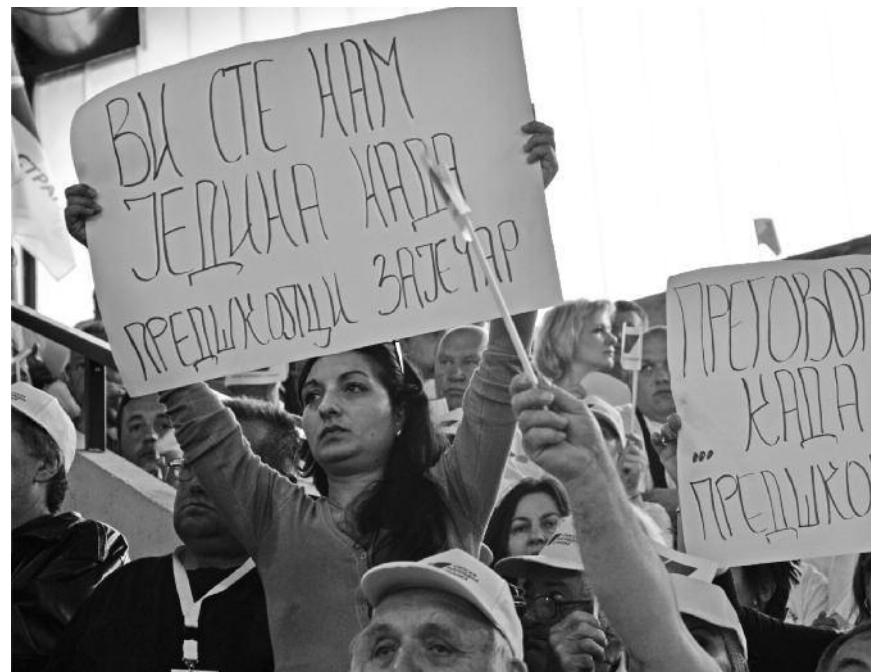 ВИ СТЕ НАМ
ЈЕДИНА НАДА
ПРЕДШКОЛЦИ ЗАЈЕЧАР
ПРЕГОВОР
... КАДА
ПРЕДШКО
СТРА